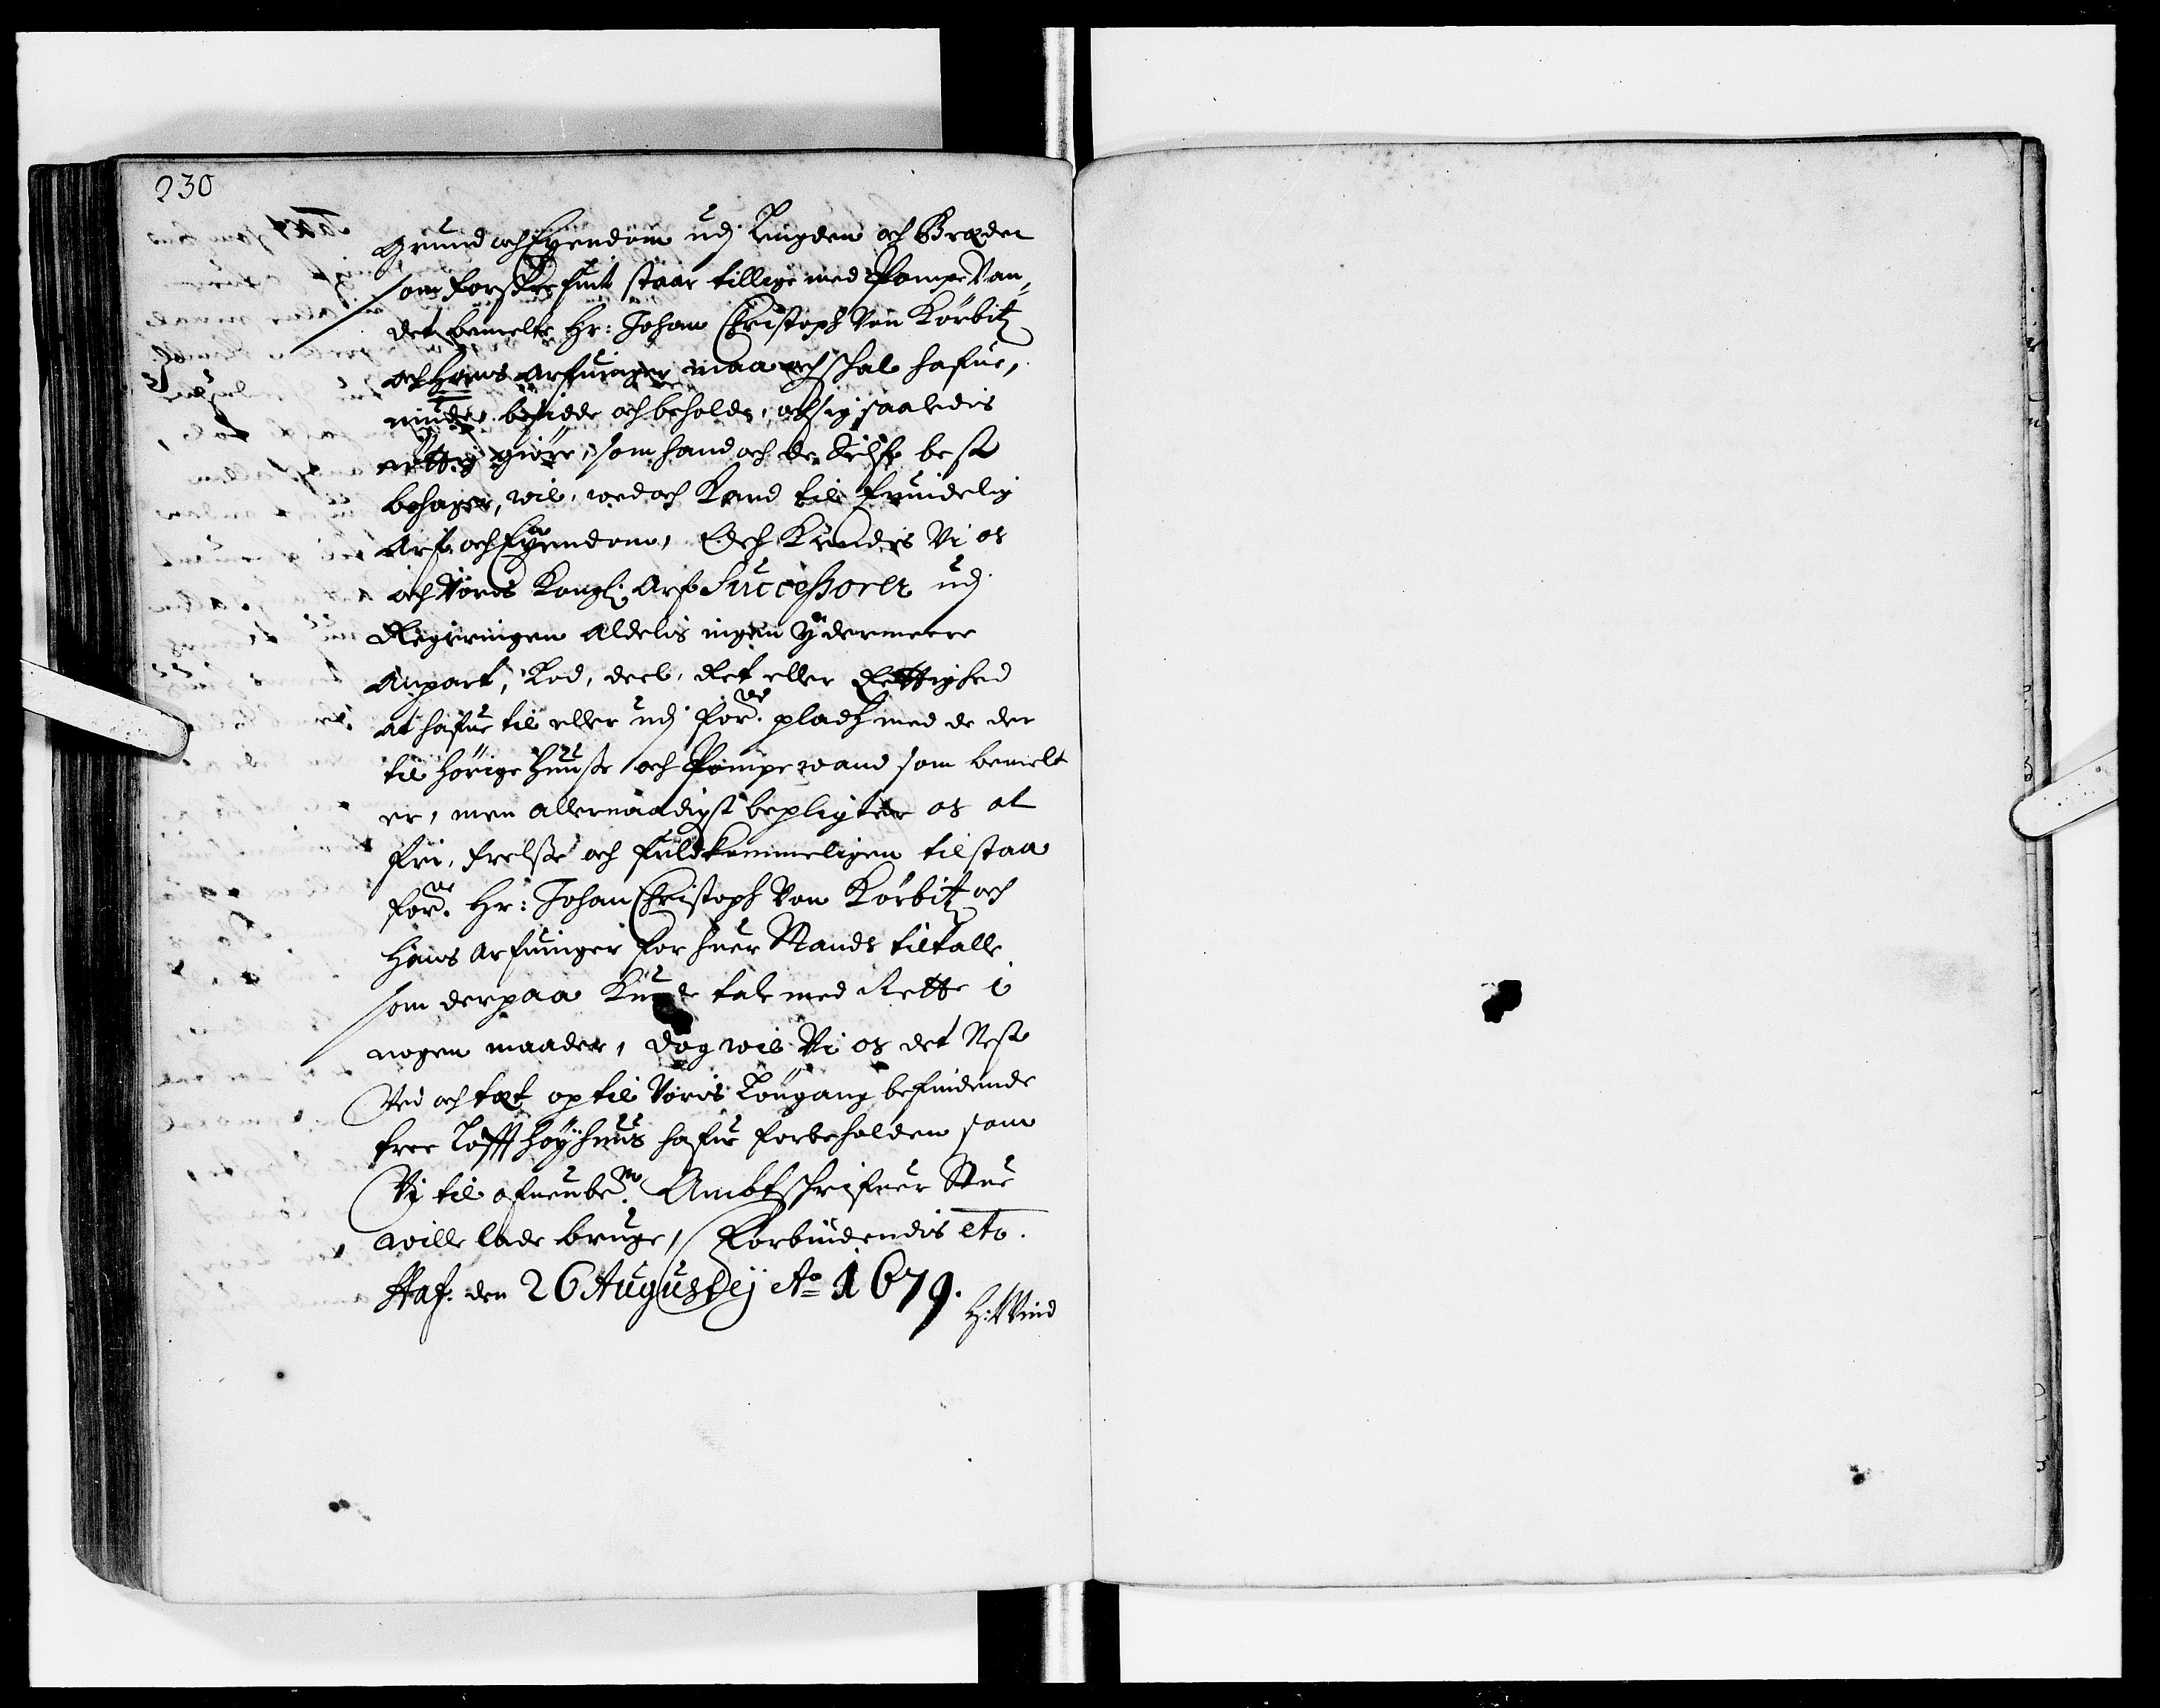 230
Grund och Eyendom udj Lengden och Breden
som forskrefuit staar tillige med Pompe Van,,
det bemelte Hr: Johan Christoph Von Körbitz
och Hans arfuinger maa och schal hafue,
niude, besidde och beholde, och sig saaledis
nyttig giöre, som hand och de Selfv best
behager, wil, ved och Kand til Evindelig
Arf och Eyendom, Och Kiendes Vi os
och Voris Kongl: Arf Successorer udj
Regieringen aldelis ingen ydermeere
Anpart, Lod, deel, Ret eller Rettighed
at hafue til eller udj for.ne pladtz med de der
til hörige Huuse och Pompe vand som bemelt
er, men allernaadigst bepligter os at
fri, frelsse och fuldkommeligen tilstaa
for.ne Hr: Johan Christoph Von Körbitz och
Hans arfuinger for huer Mands tiltalle
som derpaa Kunde tale med Rette i
nogen maader, dog wil Vi os det Nest
Ved och tæt op til Voris Löngang befindende
tree Lofft höyhuus hafue forbeholden som
Vi til ofuenbe.te Ambtschrifuer Stue
wille lade bruge, Forbiudendis etc.
Haf. den 26 Augustij Ao 1679.
H: Wind